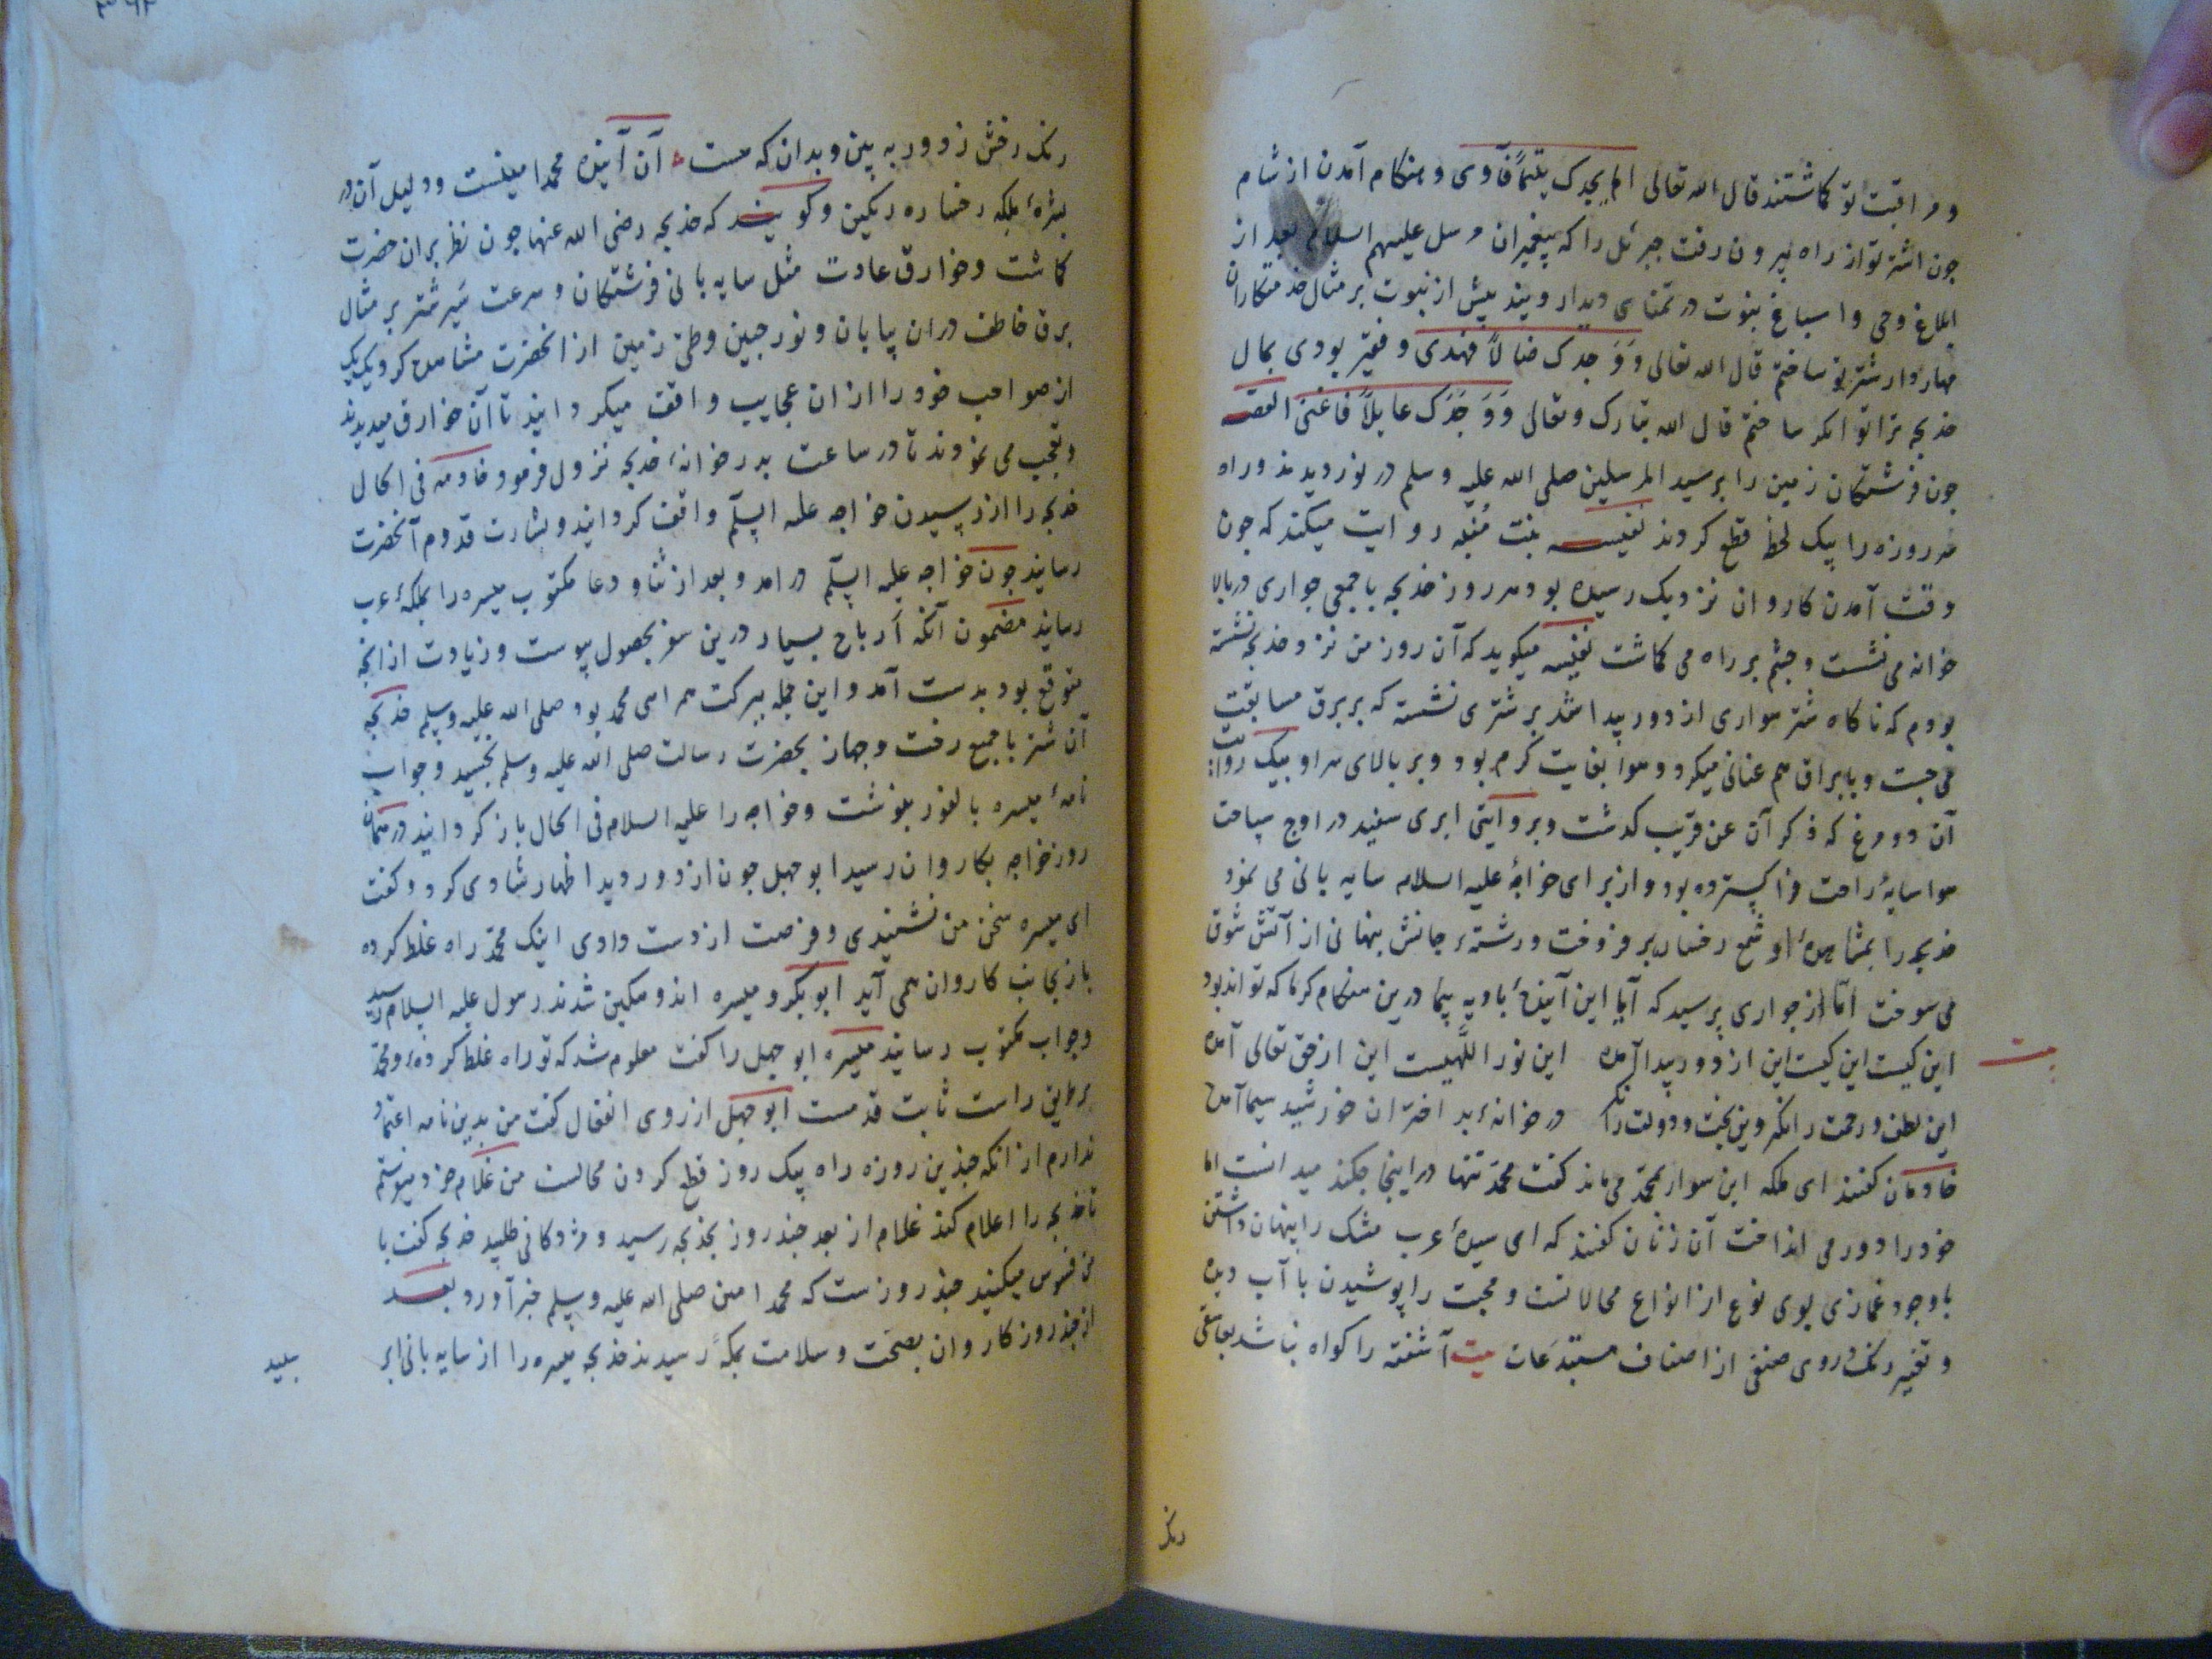 و مراقبت تو کماشتند قال الله تعالی الم یجدک یتیماً فآوی و هنکام آمدن از شام
جون اشتر تو از راه بیرون رفت جبرئل را که پیغمبران مرسل علیهم السلام بعد از
ابلاغ وحی و اسباغ نبوت در تمنای دیدار ویند بیش از نبوت بر مثال خدمتکاران
مهاردار شتر تو ساختم قال الله تعالی وَوَجدک ضالاً فهَدی و فقیر بودی بمال
خدیجه ترا توانکر ساختم قال الله تبارک وتعالی وَوَجَدَک عایلاً فاغنی القصه
جون فرشتکان زمین را بر سید المرسلین صلی الله علیه وسلم در نوردیدند و راه
هر روزه را بیک لحظه قطع کردند نفیسه بنت مُنیه روایت میکند که جون
وقت آمدن کاروان نزدیک رسیده بود هر روز خدیجه با جمعی جواری در بالا
خوانه می نشست و جشم بر راه می کماشت نفیسه میکوید که آن روز من نزد خدیجه نشسته
بودم که ناکاه شتر سواری از دور پیدا شد بر شتری نشسته که بر برق مسابقت
می جست و با براق هم عنانی میکرد و هوا بغایت کرم بود و بر بالای سر او بیک روایت
آن دو مرغ که ذکر آن عن قریب کدشت و بروایتی ابری سفید در اوج سباحت
هوا سایهٔ راحت فرا کسترده بود و از برای خواجهٔ علیه السلام سایه بانی می نمود
خدیجه را بمشاهدهٔ او شمع رخسار برفروخت و رشتهٔ جانش بنهانی از آتش شوق
می سوخت اما از جواری پرسید که آیا این آیندهٔ بادیه پیما درین هنکام کرما که تواند بود
این کیست این کیست این از دور پیدا آمده این نور اللّهیست این از حق تعالی آمده
این لطف و رحمت را نکر وین بخت و دولت را نکر در خوانهٔ بد اختران خورشید سیما آمده
خادمان کفتند ای ملکه این سوار بمحمد می ماند کفت محمد تنها در اینجا جکند میدانست اما
خود را دور می انداخت آن زنان کفتند که ای سیدهٔ عرب مشک را پنهان داشتن
با وجود غمازی بوی نوع از انواع محالاتست و محبت را پوشیدن با آب دیده
و تغییر رنک روی صنفی از اصناف مستبدَعات بیت آشفته را کواه نباشد بعاشقی
رنک
رنک رخش ز دور به بین و بدان که هست آن آینده محمد امینست و دلیل آن در
بشرهٔ بلکه رخساره رنکین و کویند که خدیجه رضی الله عنها جون نظر بر ان حضرت
کماشت و خوارق عادت مثل سایه بانی فرشتکان و سرعت سَیر شتر بر مثال
برق خاطف در ان بیابان و نور جبین و طیّ زمین از انحضرت مشاهده کرد یک یک
از صواحب خود را از ان عجایب واقف میکردانید تا آن خوارق میدیدند
و تعجب می نمودند تا در ساعت بدر خوانهٔ خدیجه نزول فرمود خادمه فی الحال
خدیجه را از رسیدن خواجه علیه السلم واقف کردانید و بشارت قدوم آنحضرت
رسانید جون خواجه علیه السلم در امد و بعد از ثنا و دعا مکتوب میسره را بملکهٔ عرب
رسانید مضمون آنکه اَرباح بسیار درین سفر بحصول پیوست و زیادت از انچه
متوقع بود بدست آمد و این جمله ببرکت همراهی محمد بود صلی الله علیه وسلم خدیجه
آن شتر با جمیع رخت و جهاز بحضرت رسالت صلی الله علیه وسلم بخشید و جواب
نامهٔ میسره بالفور بنوشت و خواجه را علیه السلام فی الحال باز کردانید در همان
روز خواجه بکاروان رسید ابو جهل جون از دور دید اظهار شادی کرد و کفت
ای میسره سخن من نشنیدی و فرصت از دست دادی اینک محمد راه غلط کرده
باز بجانب کاروان همی آید ابو بکر و میسره اندوهکین شدند رسول علیه السلام رسید
و جواب مکتوب رسانید میسره ابو جهل را کفت معلوم شد که تو راه غلط کردهٔ و محمد
بر طریق راست ثابت قدمست ابو جهل از روی انفعال کفت من بدین نامه اعتماد
ندارم از انکه جندین روزه راه بیک روز قطع کردن محالست من غلام خود میفرستم
تا خدیجه را اعلام کند غلام از بعد جند روز بخدیجه رسید و مژدکانی طلبید خدیجه کفت با
من فسوس میکنید جند روزست که محمد امین صلی الله علیه وسلم خبر آورد بعد
از جند روز کاروان بصحت و سلامت بمکه رسیدند خدیجه میسره را از سایه بانی ابر
سپید